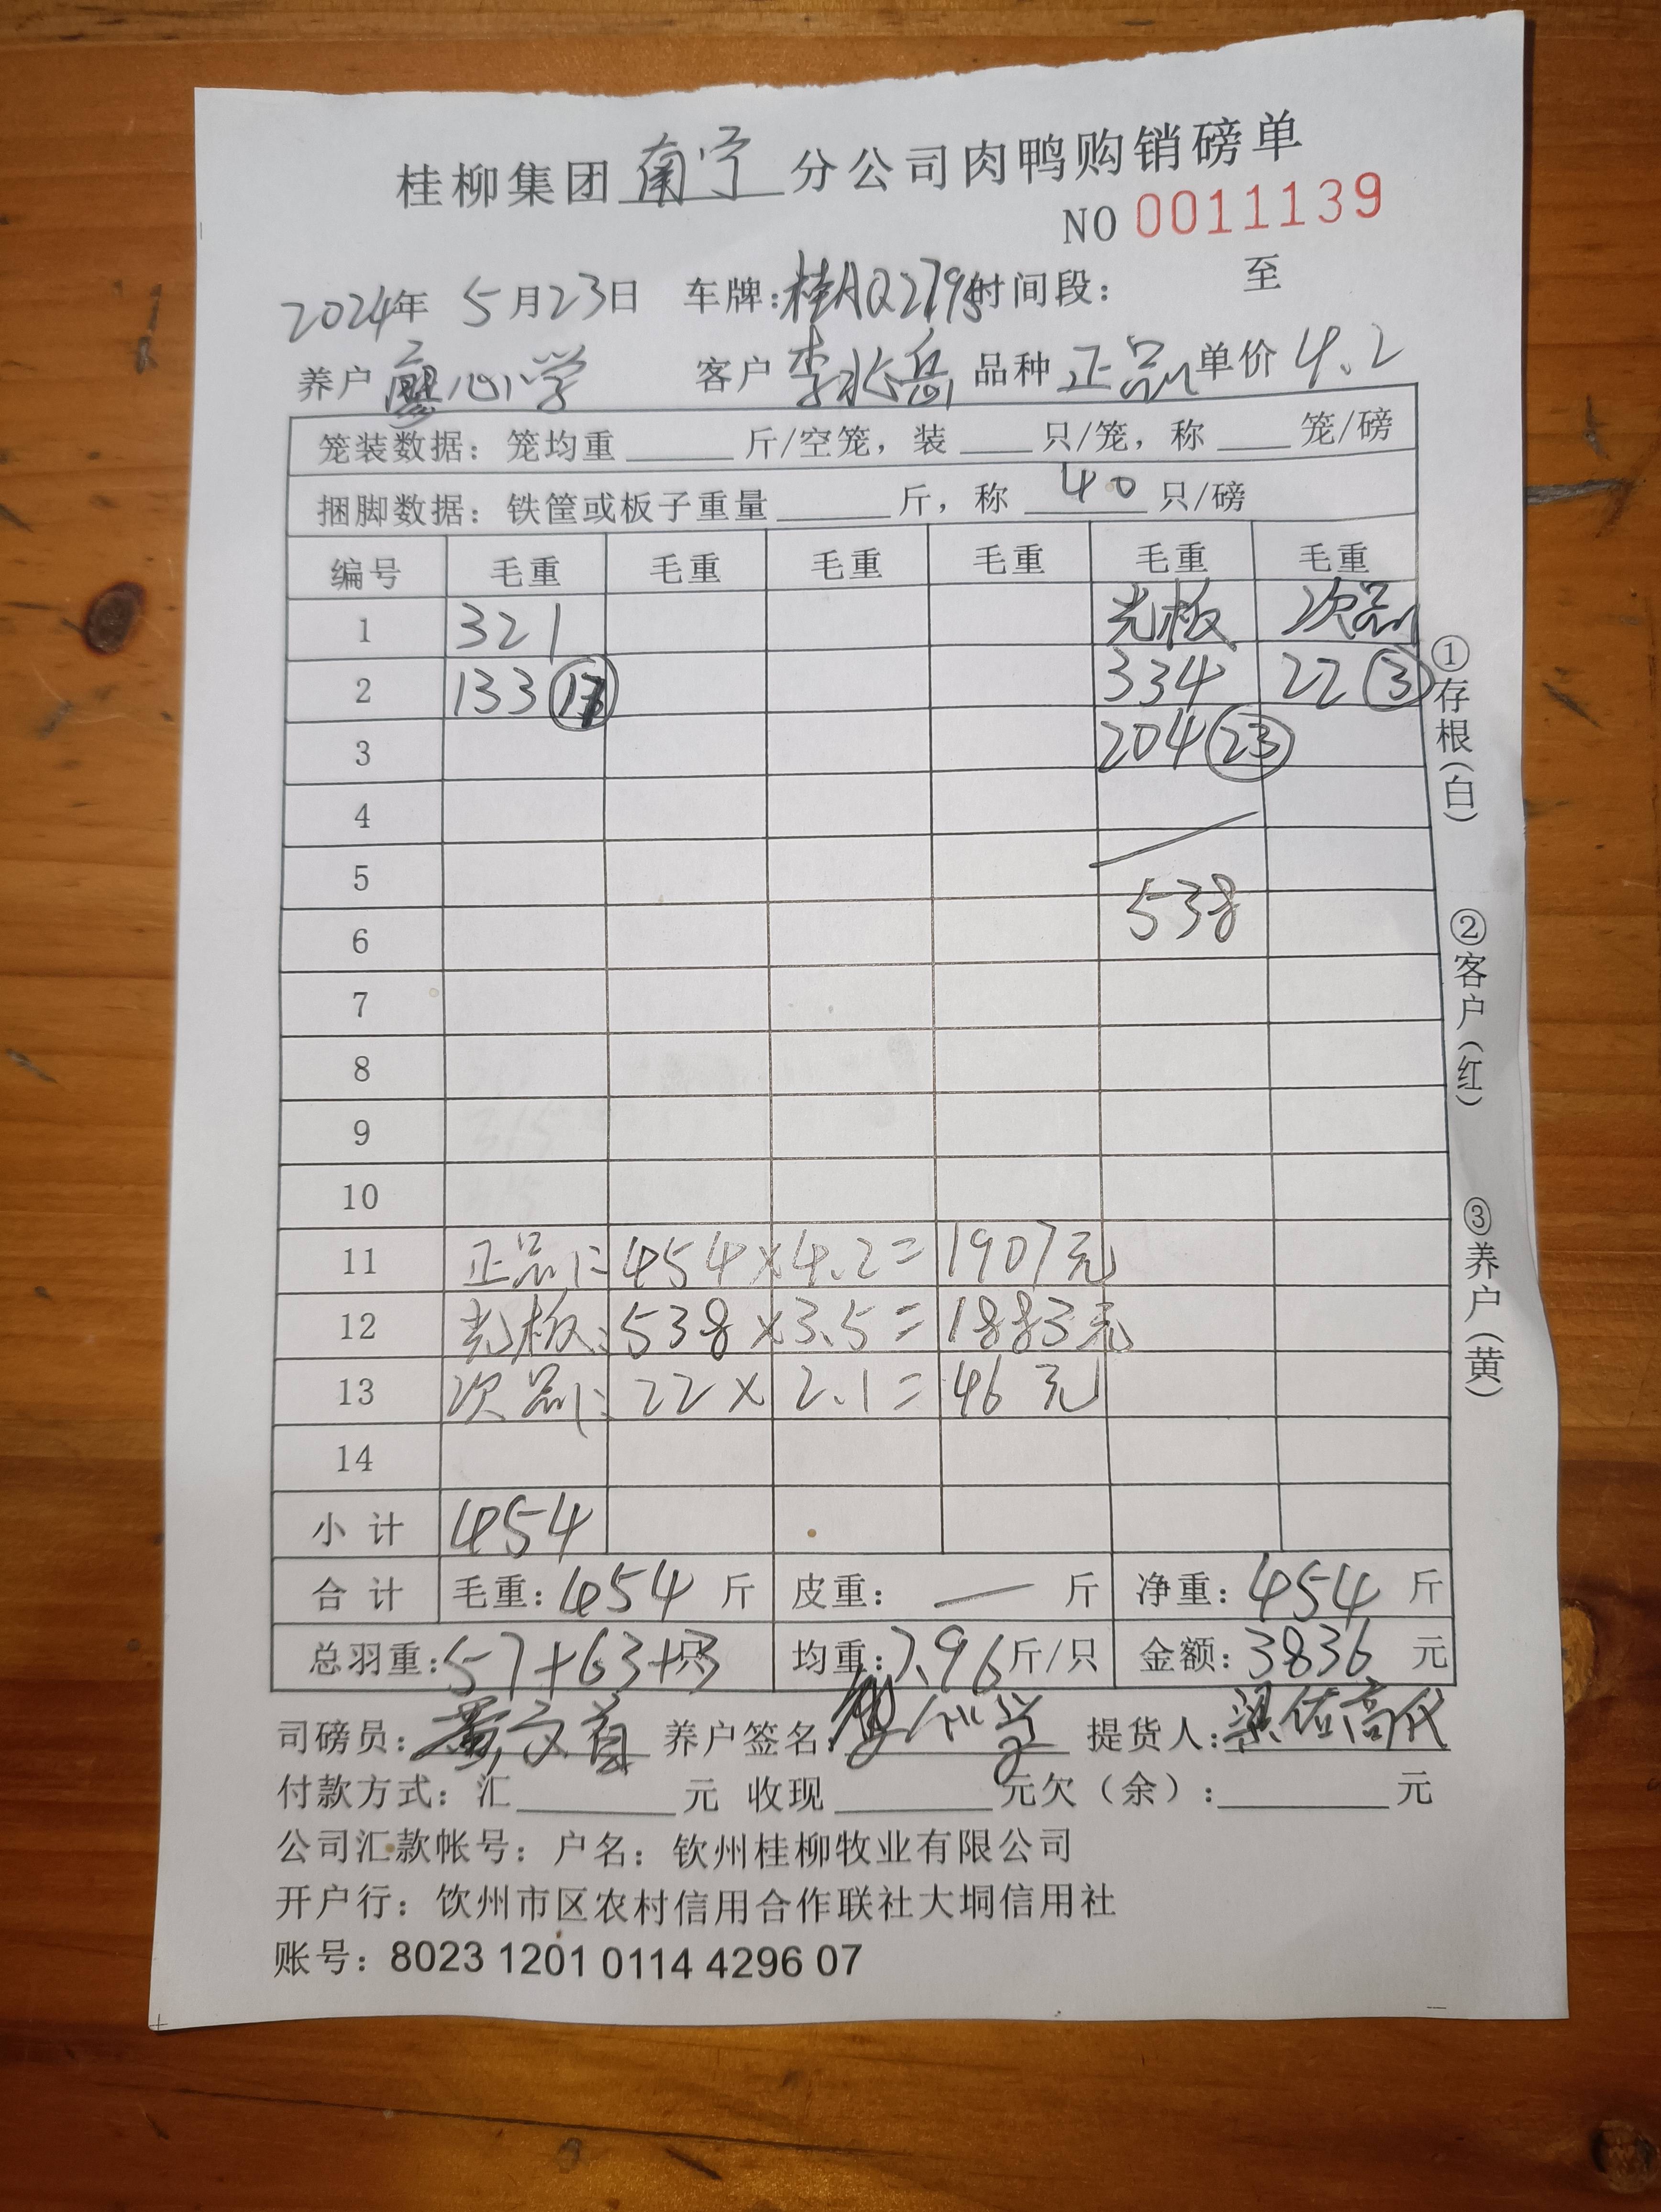 桂柳集团南宁分公司肉鸭购销磅单
NO 0011139
2024年 5月23日 车牌:桂AQ2795时间段: 至
养户 廖心学 客户 李兆岳 品种 正品 单价 4.2
笼装数据: 笼均重 斤/空笼, 装 只/笼, 称 笼/磅
捆脚数据: 铁筐或板子重量 斤, 称 40 只/磅
编号 毛重 毛重 毛重 毛重 毛重 毛重
1 321 光板 次品
2 133 17 334 22 3
3 204 23
4
5
538
6
7
8
9
10
11 正品: 454×4.2= 1907元
12 光板: 538×3.5= 1883元
13 次品: 22×2.1= 46元
14
小计 454
合计 毛重: 454 斤 皮重: — 斤 净重: 454 斤
总羽重: 57+63+3只 均重: 7.96斤/只 金额: 3836 元
司磅员: 养户签名: 廖心学 提货人:
付款方式: 汇 元 收现 元欠(余): 元
公司汇款帐号: 户名: 钦州桂柳牧业有限公司
开户行: 钦州市区农村信用合作联社大垌信用社
账号: 8023 1201 0114 4296 07
①存根(白)
②客户(红)
③养户(黄)